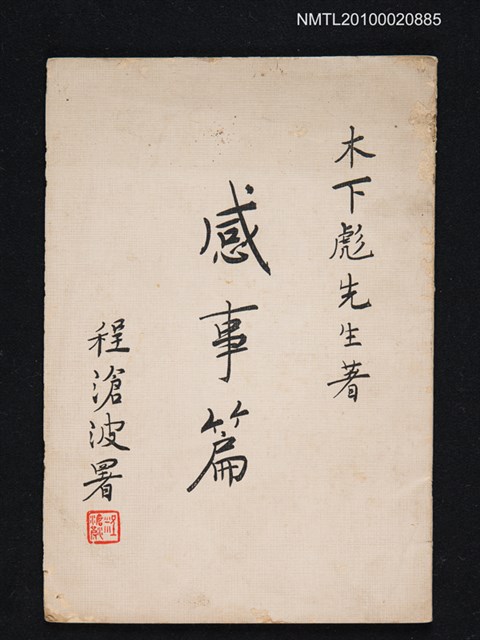 NMTL20100020885
木下彪先生著
感事篇
程滄波署